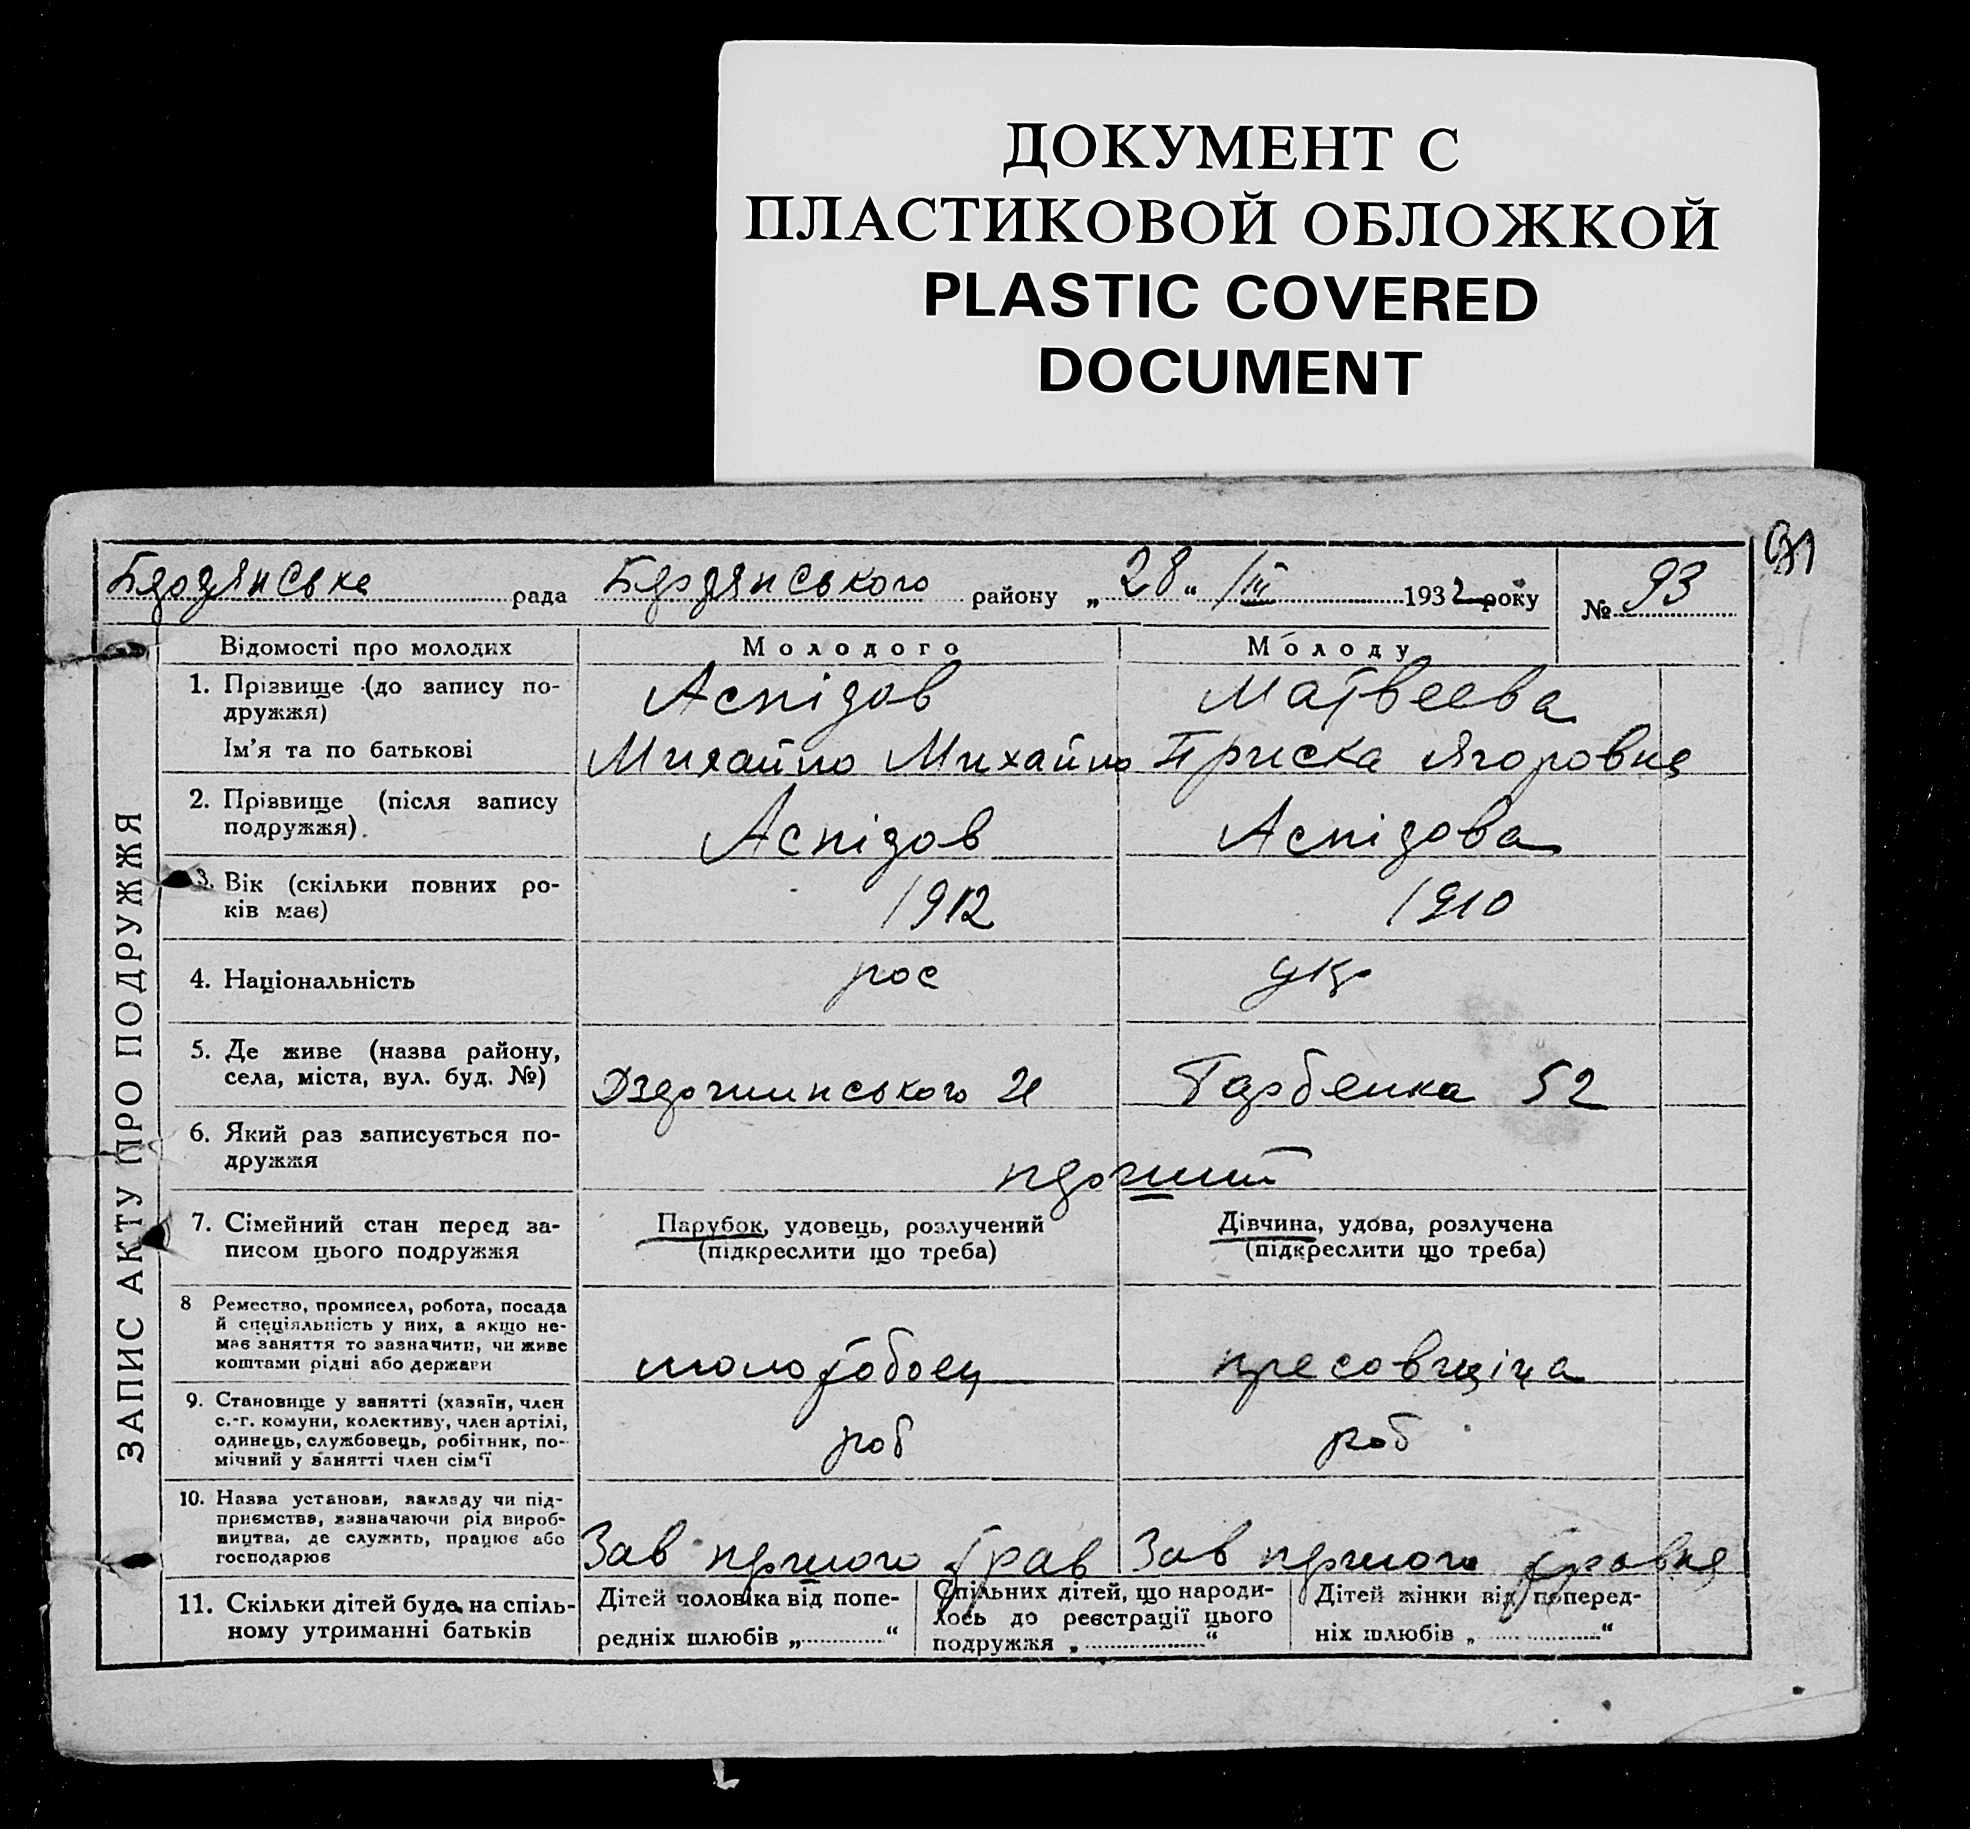 ДОКУМЕНТ С
ПЛАСТИКОВОЙ ОБЛОЖКОЙ
PLASTIC COVERED
DOCUMENT
91
Бердянська рада Бердянського району „28“ /III 1932 року № 93
ЗАПИС АКТУ ПРО ПОДРУЖЖЯ
Відомості про молодих Молодого Молоду
1. Прізвище (до запису по-
дружжя) Аспідов Матвеева
Ім'я та по батькові Михайло Михайло Приска Ягоровна
2. Прізвище (після запису
подружжя). Аспідов Аспідова
3. Вік (скільки повних ро-
ків має) 1912 1910
4. Національність рос укр
5. Де живе (назва району,
села, міста, вул. буд. №) Дзержинського Горбенка 52
6. Який раз записується по-
дружжя перший
7. Сімейний стан перед за-
писом цього подружжя
Парубок, удовець, розлучений
(підкреслити що треба)
Дівчина, удова, розлучена
(підкреслити що треба)
8 Ремество, промисел, робота, посада
й спеціяльність у них, а якщо не-
має заняття то зазначити, чи живе
коштами рідні або держави молотобоец пресовщіца
9. Становище у занятті (хазяїн, член
с.-г. комуни, колективу, член артілі,
одинець, службовець, робітник, по-
мічний у занятті член сім'ї роб роб
10. Назва установи, закладу чи під-
приємства, зазначаючи рід вироб-
ництва, де служить, працює або
господарює Зав першого трав Зав першого травня
11. Скільки дітей буде на спіль-
ному утриманні батьків
Дітей чоловіка від попе-
редніх шлюбів „ “
Спільних дітей, що народи-
лось до реєстрації цього
подружжя „ “
Дітей жінки від поперед-
ніх шлюбів „ “